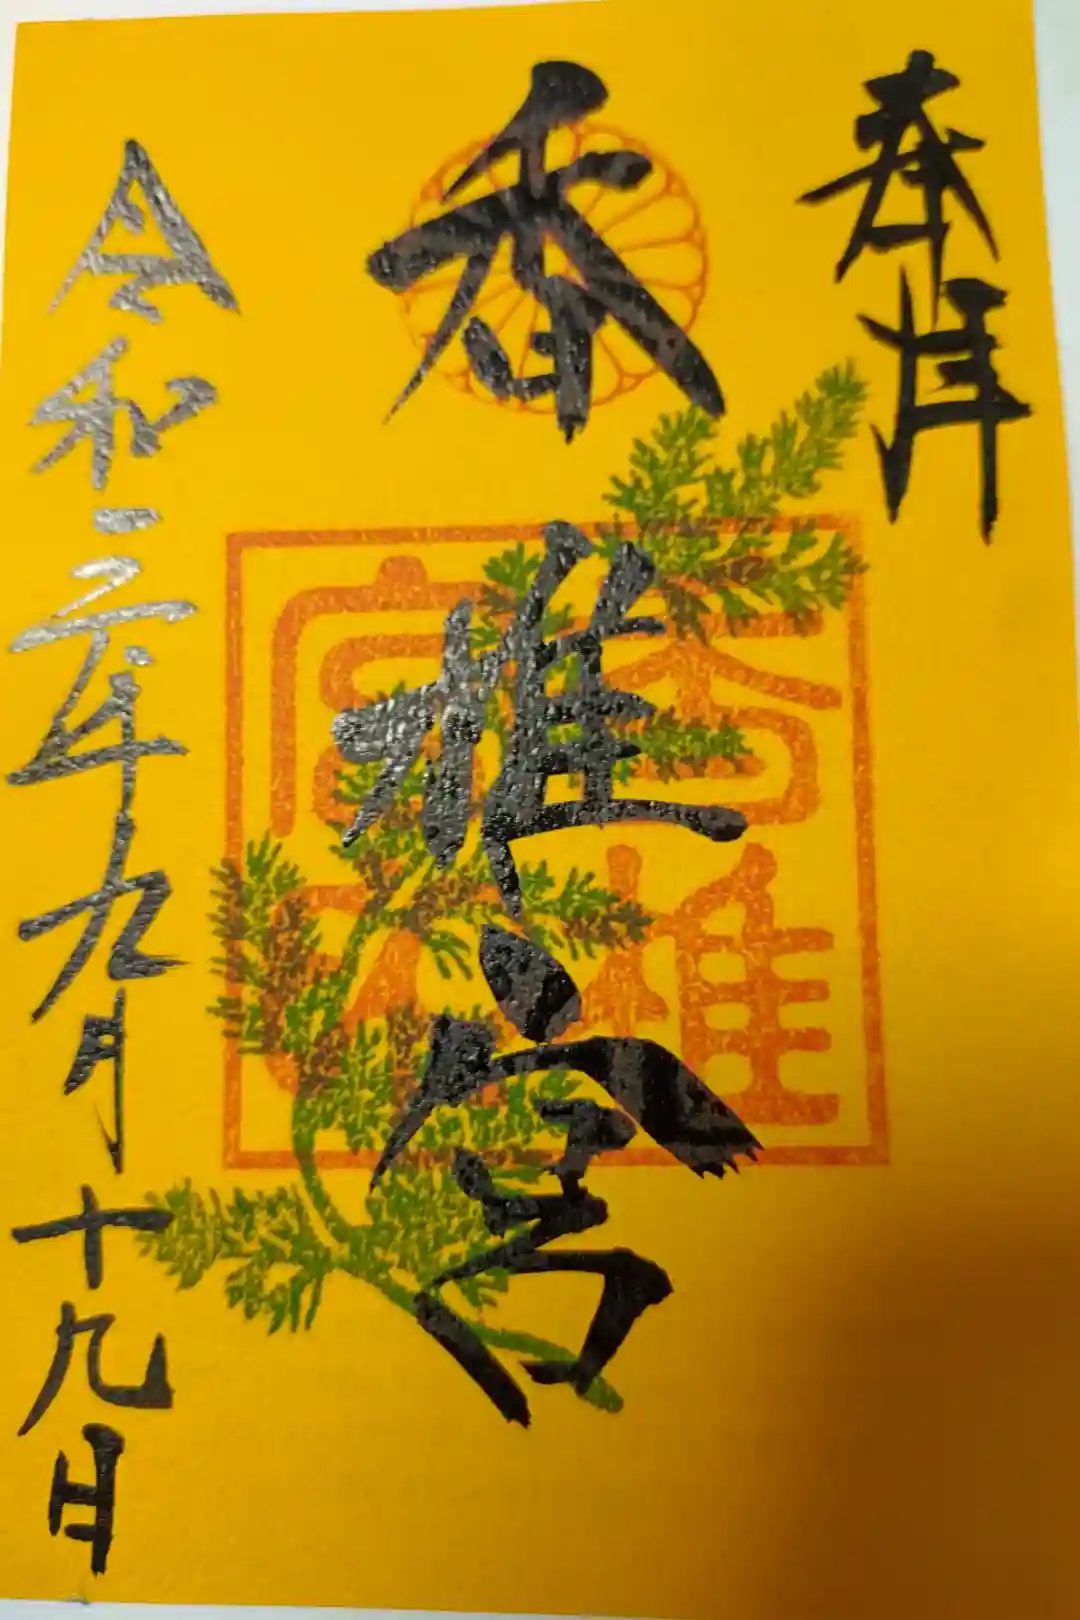 奉拝
香椎宮
令和三年九月十九日